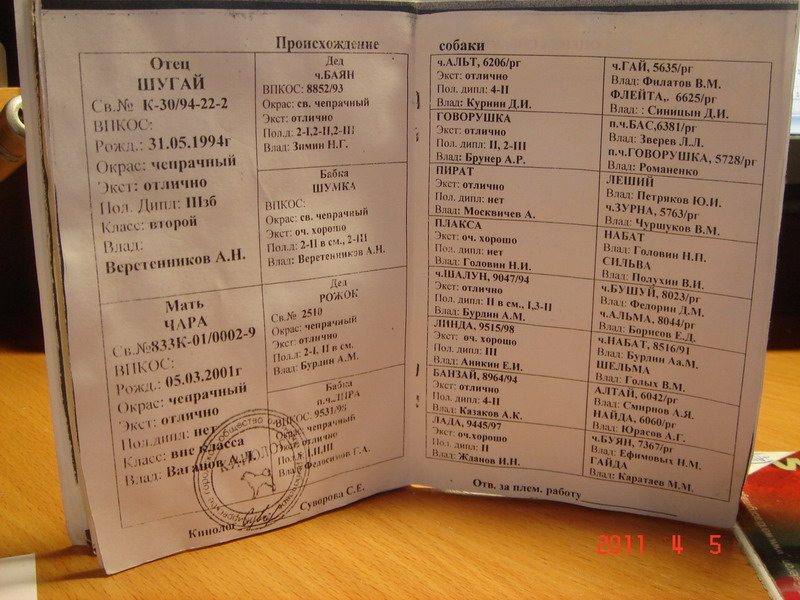 Происхождение
Отец
ШУГАЙ
Св.№ К-30/94-22-2
ВПКОС:
Рожд.: 31.05.1994г
Окрас: чепрачный
Экст: отлично
Пол. Дипл: IIIзб
Класс: второй
Влад:
Веретенников А.Н.
Мать
ЧАРА
Св.№833К-01/0002-9
ВПКОС:
Рожд: 05.03.2001г
Окрас: чепрачный
Экст: отлично
Пол.дипл: нет
Класс: вне класса
Влад: Ваганов А.Л.
Дед
ч.БАЯН
ВПКОС: 8852/93
Окрас: св. чепрачный
Экст: отлично
Пол.д: 2-I,2-II,2-III
Влад: Зимин Н.Г.
Бабка
ШУМКА
ВПКОС:
Окрас: св. чепрачный
Экст: оч. хорошо
Пол.д: 2-II в см., 2-III
Влад: Веретенников А.Н.
Дед
РОЖОК
Св.№ 2510
Окрас: чепрачный
Экст: отлично
Пол.д: 2-I, II в см.
Влад: Бурдин А.М.
Бабка
п.ч.
ВПКОС: 9531/98
Окрас: чепрачный
Экст: отлично
Влад: Федосимов Г.А.
Кинолог Суворова С.Е.
собаки
ч.АЛЬТ, 6206/рг
Экст: отлично
Пол. дипл: 4-II
Влад: Курнин Д.И.
ГОВОРУШКА
Экст: отлично
Пол. дипл: II, 2-III
Влад: Брунер А.Р.
ПИРАТ
Экст: отлично
Пол. дипл: нет
Влад: Москвичев А.
ПЛАКСА
Экст: оч. хорошо
Пол. дипл: нет
Влад: Головин Н.И.
ч.ШАЛУН, 9047/94
Экст: отлично
Пол. дипл: II в см., I,3-II
Влад: Бурдин А.М.
ЛИНДА, 9515/98
Экст: оч. хорошо
Пол. дипл: III
Влад: Аникин Е.И.
БАНЗАЙ, 8964/94
Экст: отлично
Пол. дипл: 4-II
Влад: Казаков А.К.
ЛАДА, 9445/97
Экст: оч.хорошо
Пол. дипл: II
Влад: Жданов И.Н.
ч.ГАЙ, 5635/рг
Влад: Филатов В.М.
ФЛЕЙТА,. 6625/рг
Влад: : Синицын Д.И.
п.ч.БАС,6381/рг
Влад: Зверев Л.Л.
п.ч.ГОВОРУШКА, 5728/рг
Влад: Романенко
ЛЕШИЙ
Влад: Петряков Ю.И.
ч.ЗУРНА, 5763/рг
Влад: Чуршуков В.М.
НАБАТ
Влад: Головин Н.П.
СИЛЬВА
Влад: Полухин В.И.
ч.БУШУЙ, 8023/рг
Влад: Федорин Д.М.
ч.АЛЬМА, 8044/рг
Влад: Борисов Е.Д.
ч.НАБАТ, 8516/91
Влад: Бурдин Аа.М.
ШЕЛЬМА
Влад: Голых В.М.
АЛТАЙ, 6042/рг
Влад: Смирнов А.Я.
НАЙДА, 6060/рг
Влад: Юрасов А.Г.
ч.БУЯН, 7367/рг
Влад: Ефимовых Н.М.
ГАЙДА
Влад: Каратаев М.М.
Отв. за плем. работу
2011 4 5